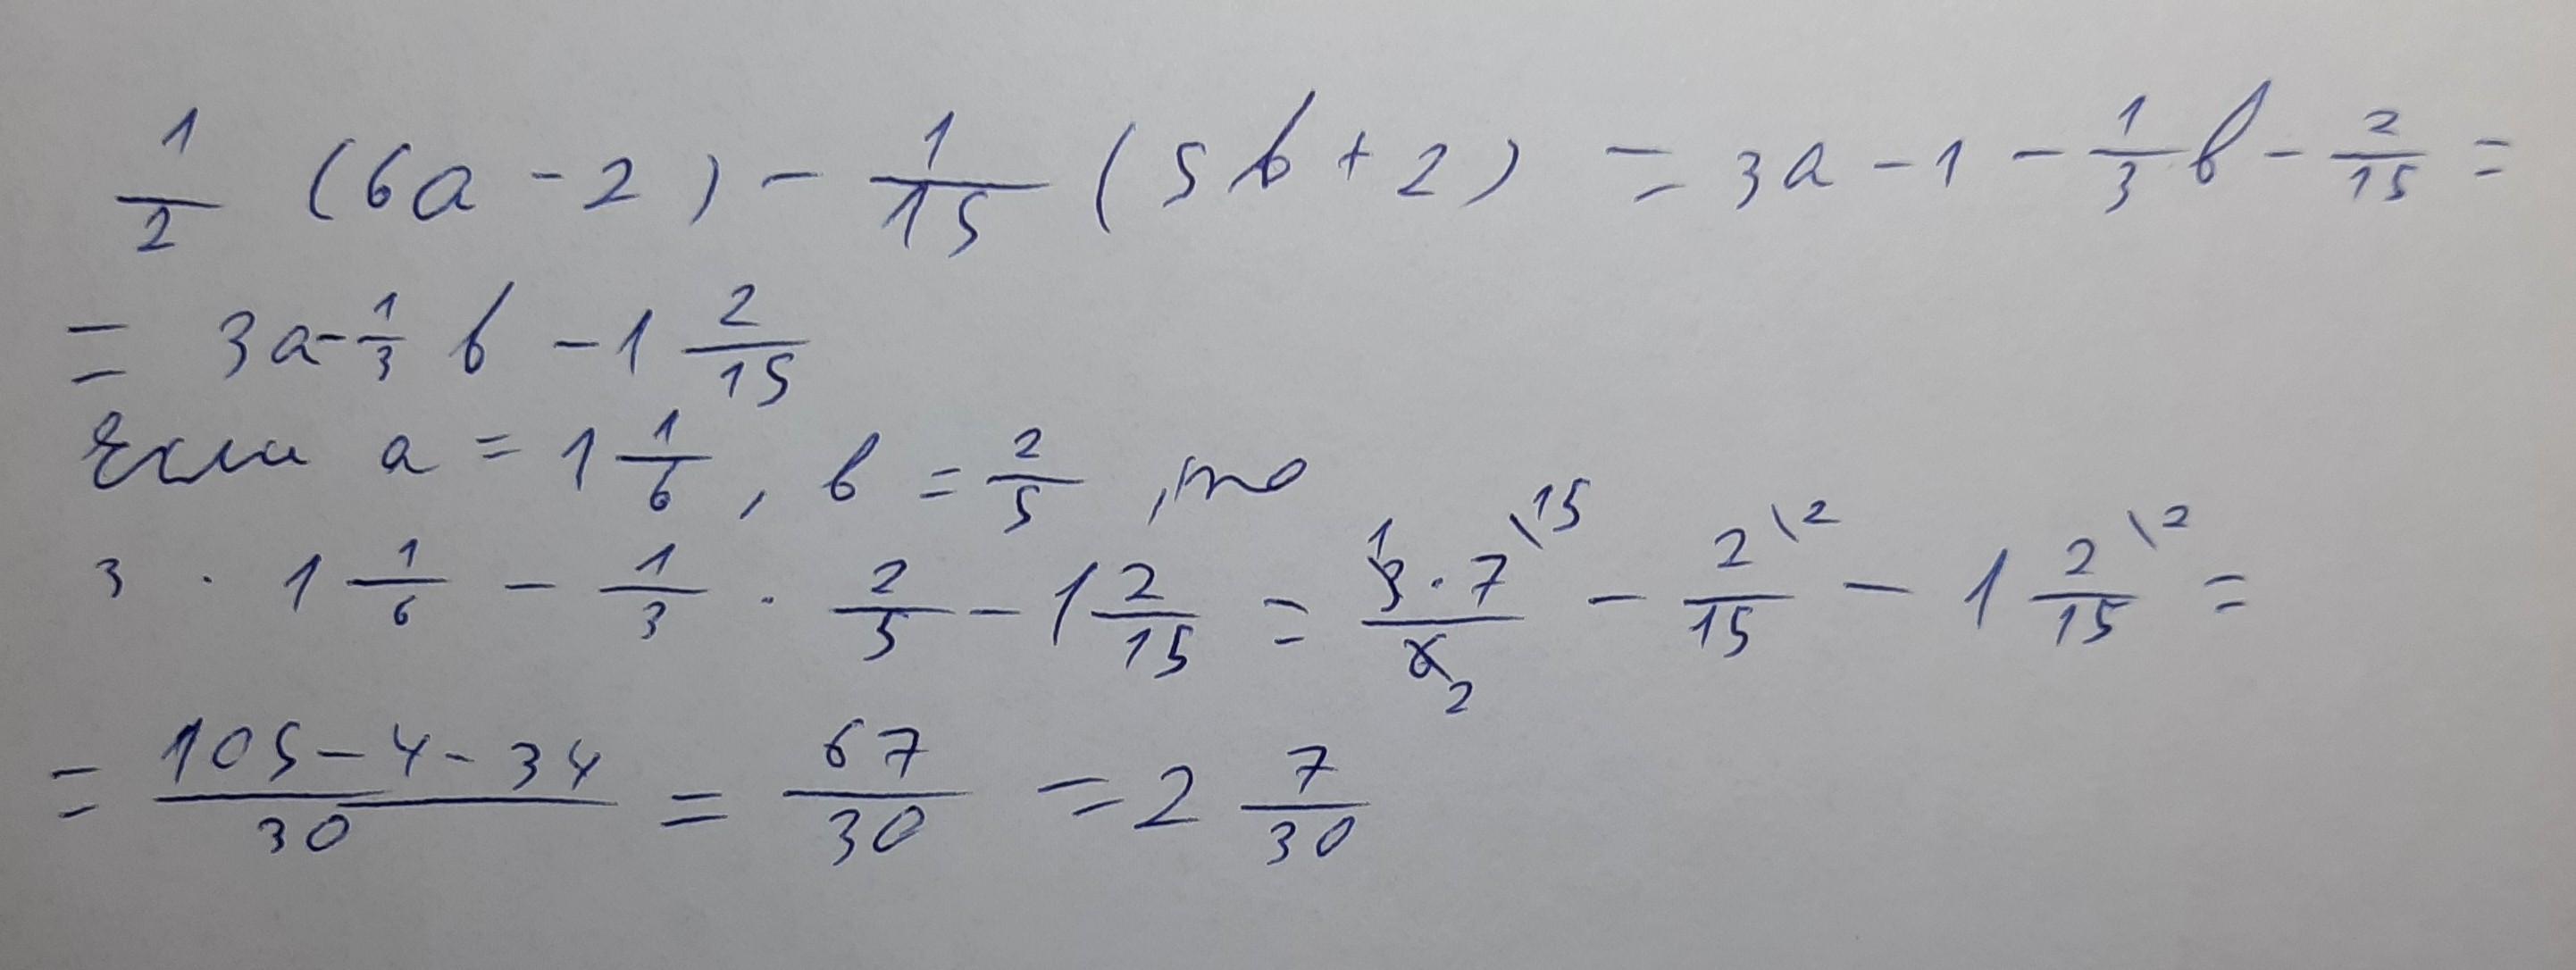 1/2 (6a - 2) - 1/15 (5b + 2) = 3a - 1 - 1/3 b - 2/15 =
= 3a - 1/3 b - 1 2/15
Если a = 1 1/6, b = 2/5, то
3 · 1 1/6 - 1/3 · 2/5 - 1 2/15 = 3 1 · 7 \15 / 6 2 - 2 \2 / 15 - 1 2 \2 / 15 =
= 105 - 4 - 34 / 30 = 67/30 = 2 7/30